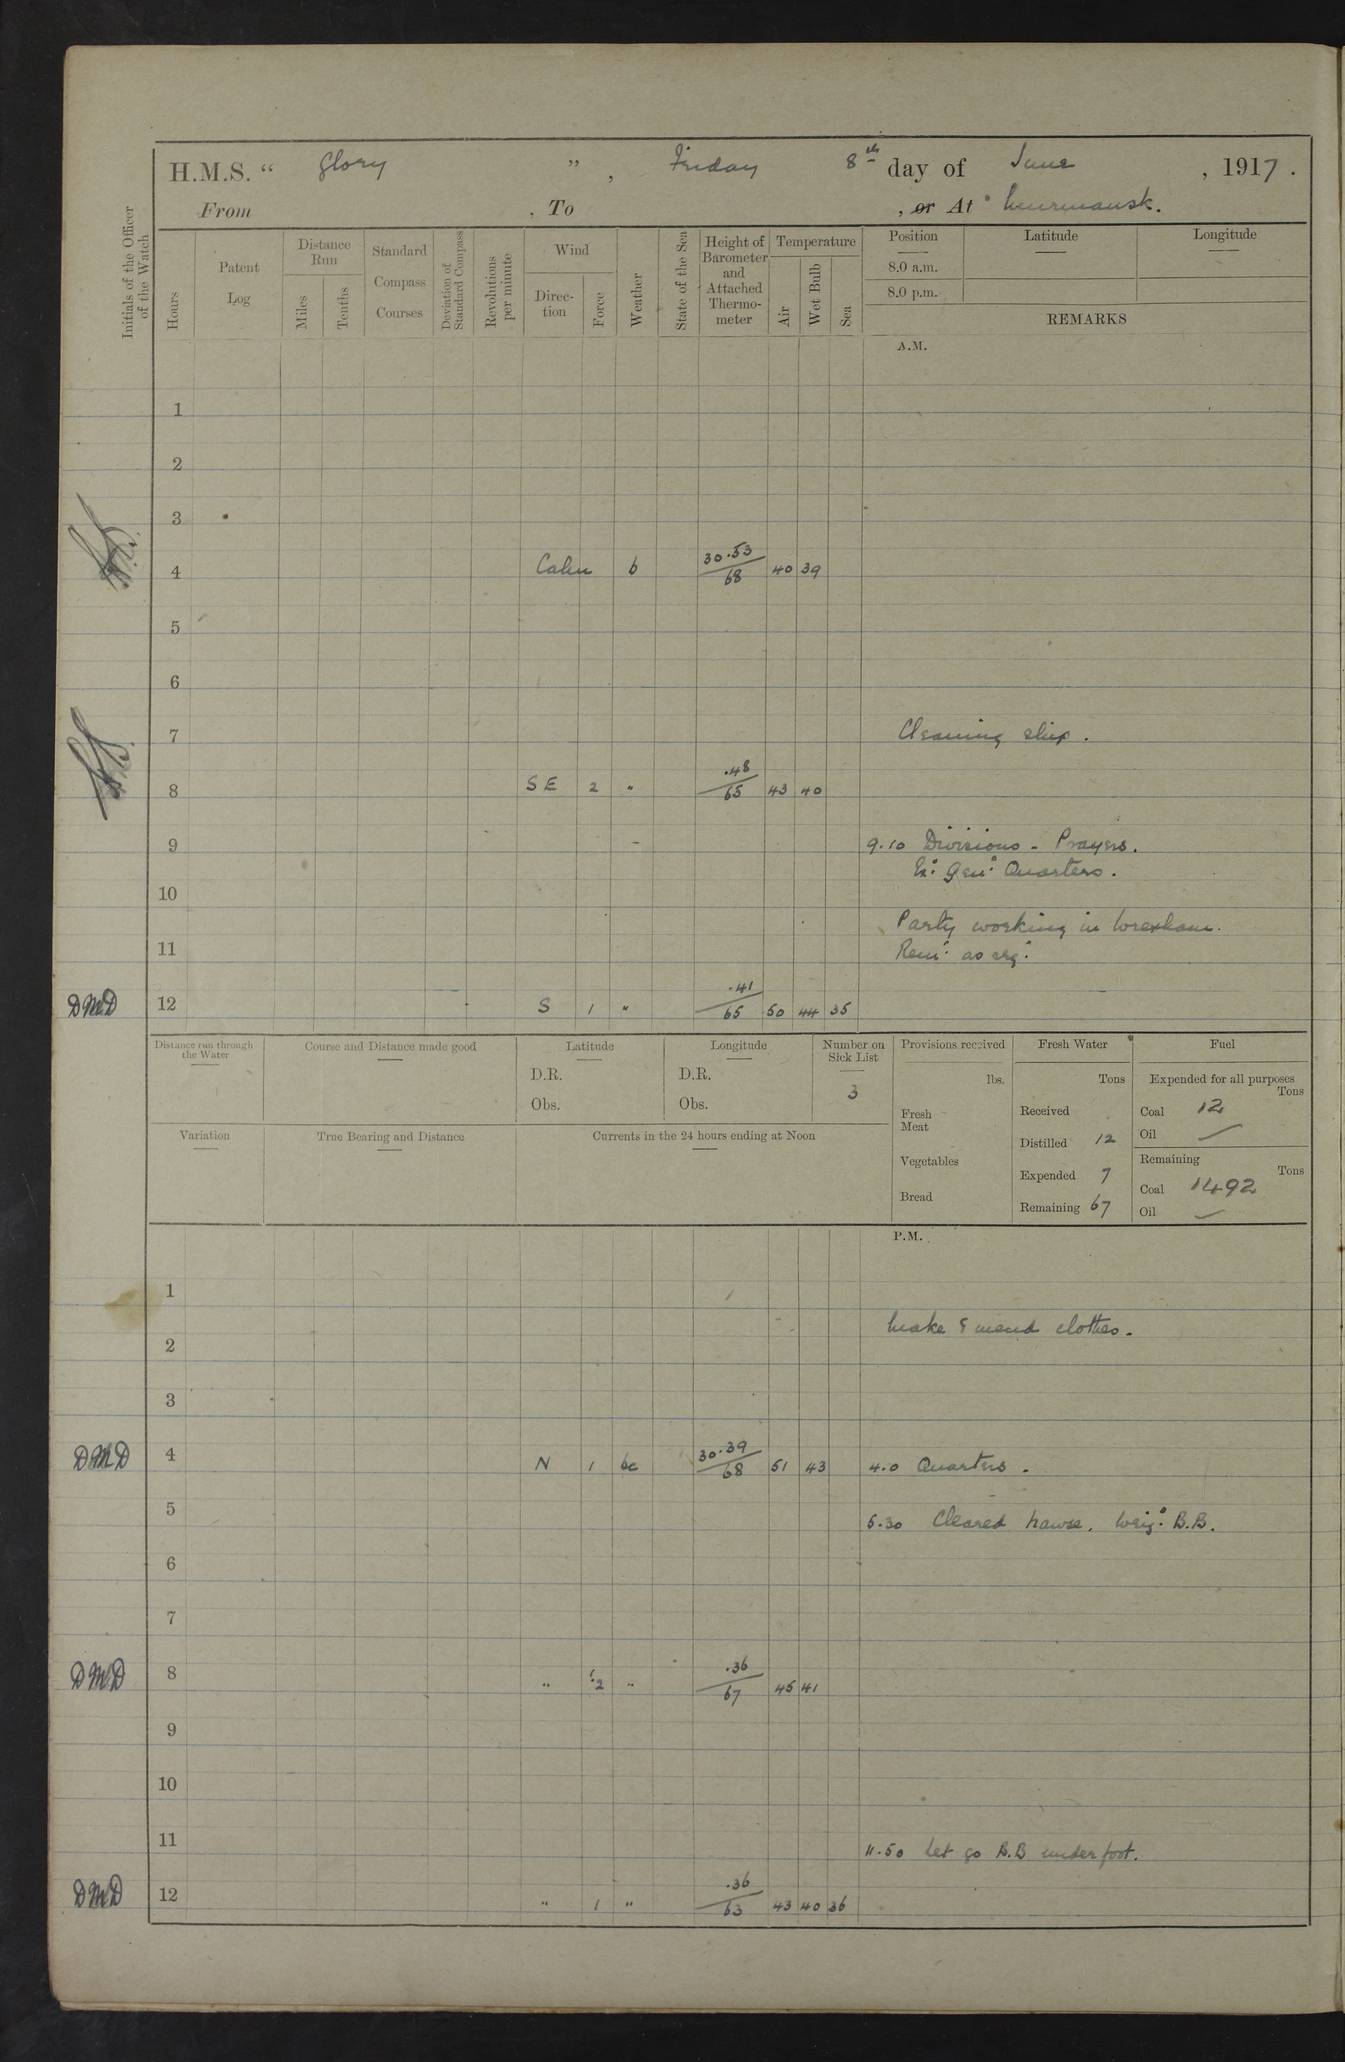 H.M.S. “ Glory ” , Friday 8th day of June , 1917 .
From , To , or At Murmansk.
Initials of the Officer of the Watch
Hours
Patent Log
Distance Run
Miles
Tenths
Standard Compass Courses
Deviation of Standard Compass
Revolutions per minute
Wind
Direction
Force
Weather
State of the Sea
Height of Barometer and Attached Thermometer
Temperature
Air
Wet Bulb
Sea
Position
Latitude
Longitude
8.0 a.m.
8.0 p.m.
REMARKS
A.M.
1
2
3
4 Calm b 30.53/68 40 39
5
6
7 Cleaning ship.
8 SE 2 " .48/65 43 40
9 9.10 Divisions - Prayers.
Ex: Gen: Quarters.
10
Party working in Wrexham.
11 Rem: as req:
DMD 12 S 1 " .41/65 50 44 35
Distance run through the Water
Course and Distance made good
Latitude
D.R.
Obs.
Longitude
D.R.
Obs.
Number on Sick List
3
Provisions received
lbs.
Fresh Meat
Vegetables
Bread
Fresh Water
Tons
Received
Distilled 12
Expended 7
Remaining 67
Fuel
Expended for all purposes
Tons
Coal 12
Oil —
Remaining
Tons
Coal 1492
Oil —
Variation
True Bearing and Distance
Currents in the 24 hours ending at Noon
P.M.
1
Make & mend clothes.
2
3
DMD 4 N 1 bc 30.39/68 51 43 4.0 Quarters.
5 5.30 Cleared hawse. Weig: B.B.
6
7
DMD 8 " 1.2 " .36/67 45 41
9
10
11 11.50 Let go B.B under foot.
DMD 12 " 1 " .36/63 43 40 36